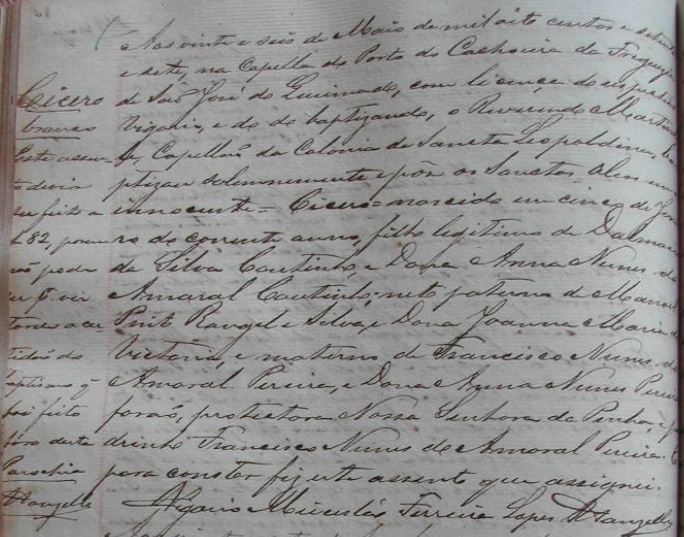 Aos vinte e seis de Maio de mil oito centos e setenta
e sete, na Capella do Porto do Cachoeira da Freguezia
de São José do Queimado, com licença do respectivo
Vigario, e do do baptizando, o Reverendo
Capellão da Colonia de Sancta Leopoldina, ba-
ptizou solemnemente e pôz os Sanctos Oleos
innocente - Cicero - nascido em cinco de Janei-
ro do corrente anno, filho legitimo de
da Silva Coutinho, e Dona Anna Nunes do
Amaral Coutinho; neto paterno de Manoel
Pinto Rangel e Silva, e Dona Joanna Maria da
Victoria, e materno de Francisco Nunes do
Amaral Pereira, e Dona Anna Nunes Pereira
forão, protectora Nossa Senhora da Penha, e pa-
drinho Francisco Nunes do Amaral Pereira. E
para constar fiz este assento que assignei.
Vigario Miecesláo Ferreira Lopes Wanzeller
Cicero
branco
Este assen-
to devia
ser feito a
f. 82, porem
não pode
ser p. vir
tarde a cer
tidão do
baptismo q
foi feito
fóra desta
Parochia
Wanzeller